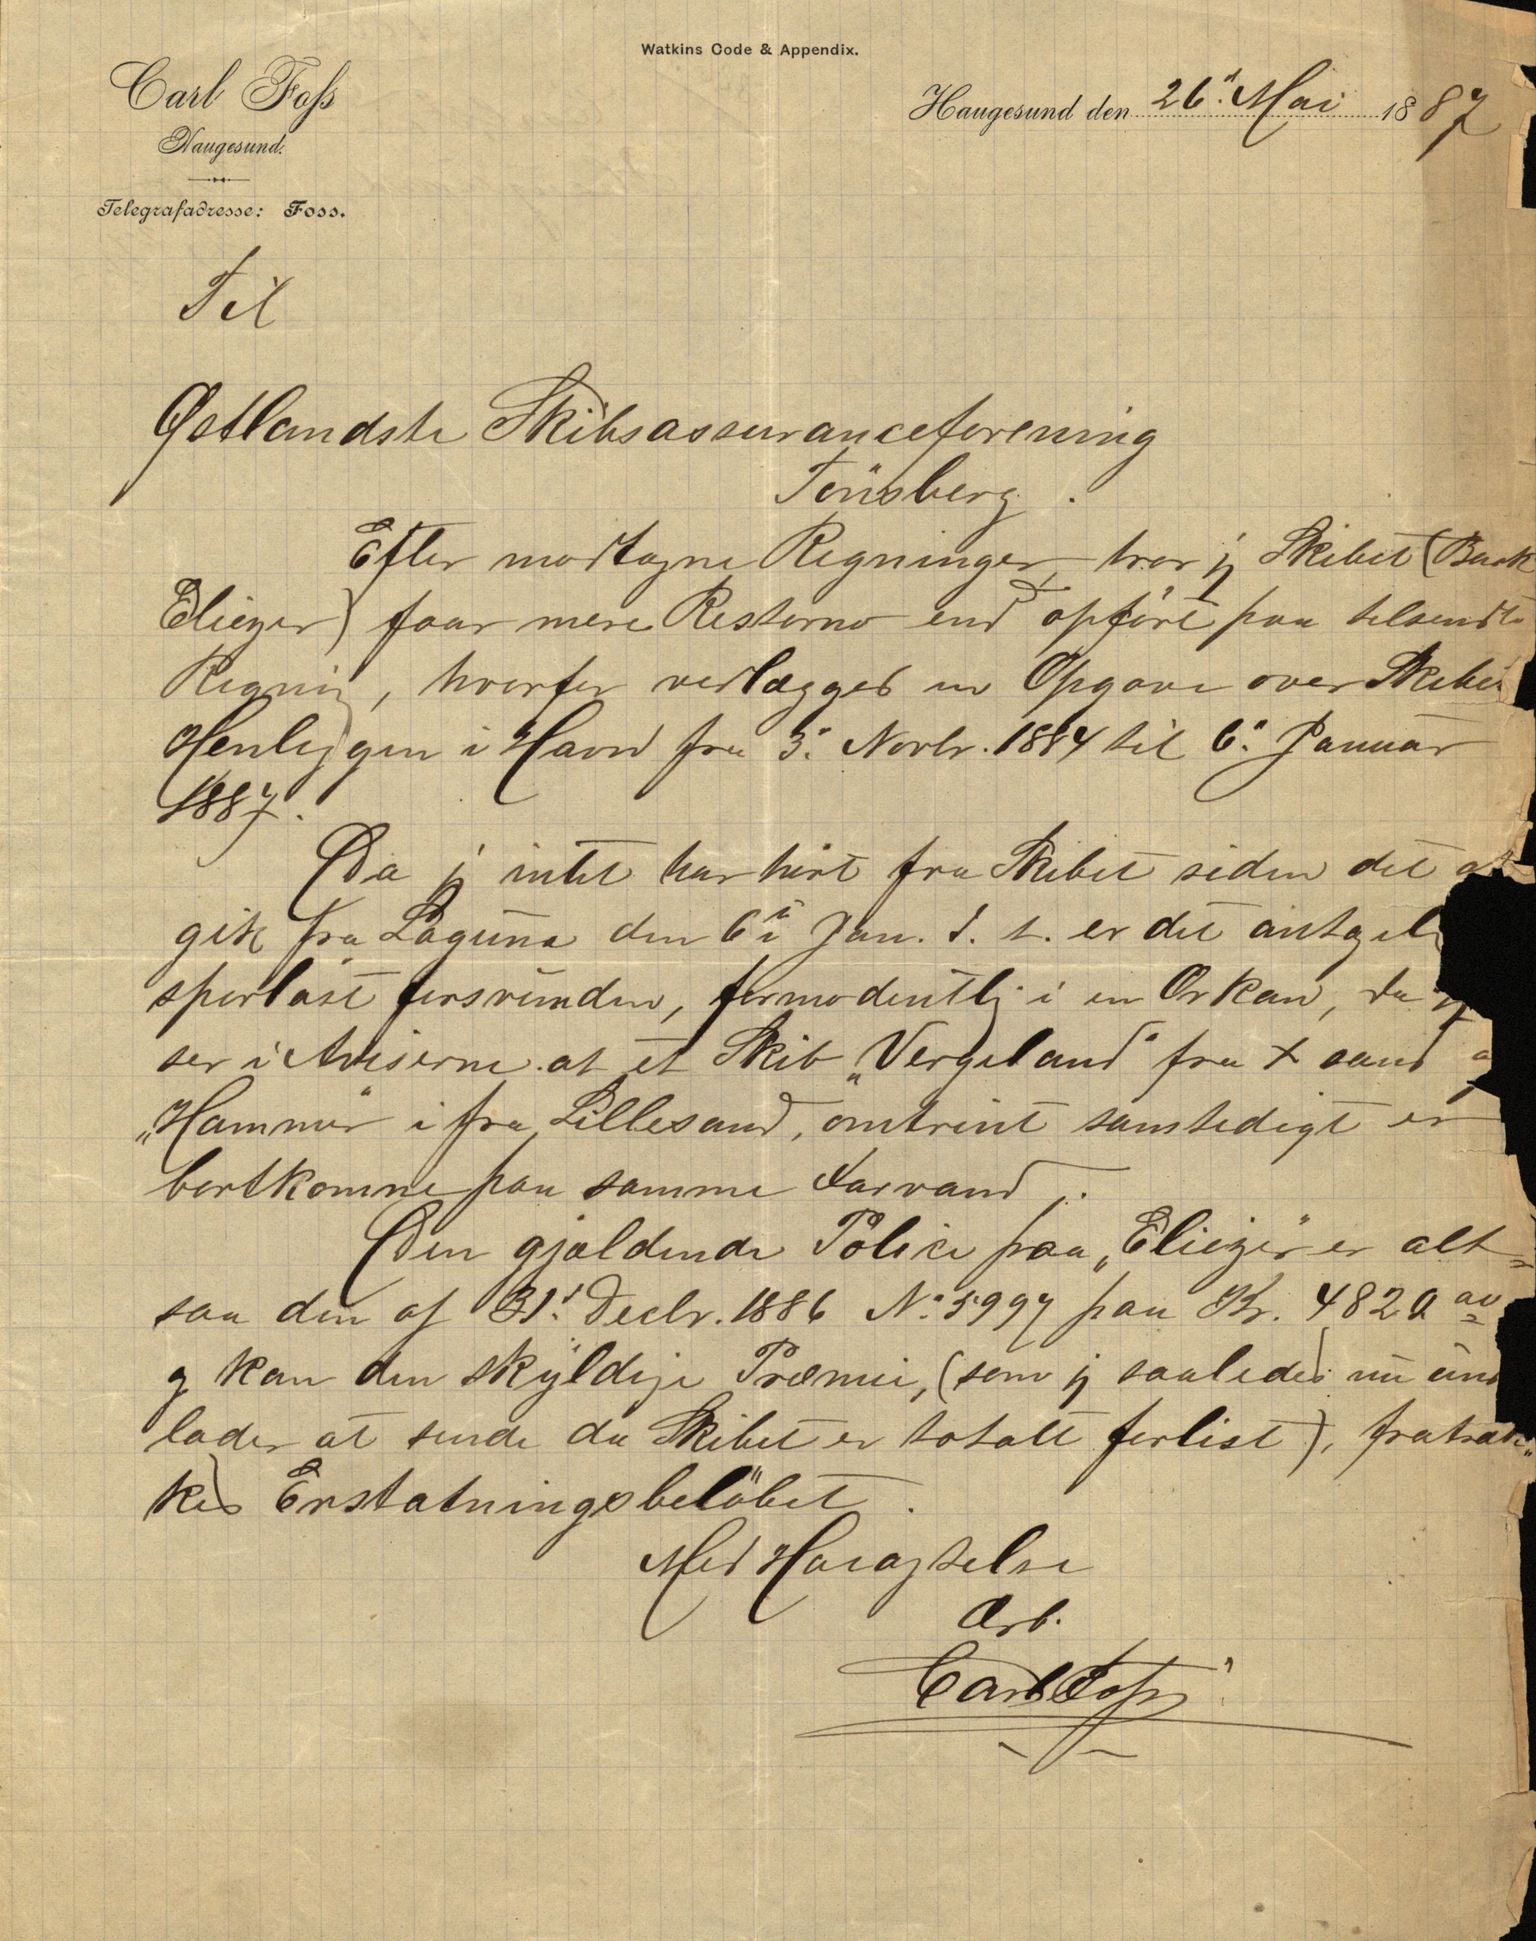 Watkins Code & Appendix.
Carl Foss
Haugesund.
Telegrafadresse: Foss.
Haugesund den 26' Mai 1887
Til
Østlandske Skibsassuranceforening
Tönsberg.
Efter modtagne Regninger tror jeg Skibet (Bark
Eliezer) faar mere Restorno end opført paa tilsendte
Regning, hvorfor vedlægges en Opgave over Skibets
Henliggen i Havn fra 3' Novbr. 1884 til 6' Januar
1887.
Da jeg intet har hört fra Skibet siden det
gik fra Laguna den 6te Jan. d. A. er det antagelig
sporlöst forsvunden, formodentlig i en Orkan, da
ser i Aviserne at et Skib „Vergeland" fra sand
„Hammer" i fra Lillesand, omtrent samtidigt er
bortkomne paa samme Farvand.
Den gjældende Police paa „Eliezer" er alt-
saa den af 31' Decbr. 1886 No 5997 paa Kr. 4820
g kan den skyldige Præmie, (som jeg saaledes nu und
lader at sende da Skibet er totalt forlist), fratræk-
kes Erstatningsbelöbet.
Med Høiagtelse
Ærb.
Carl Foss